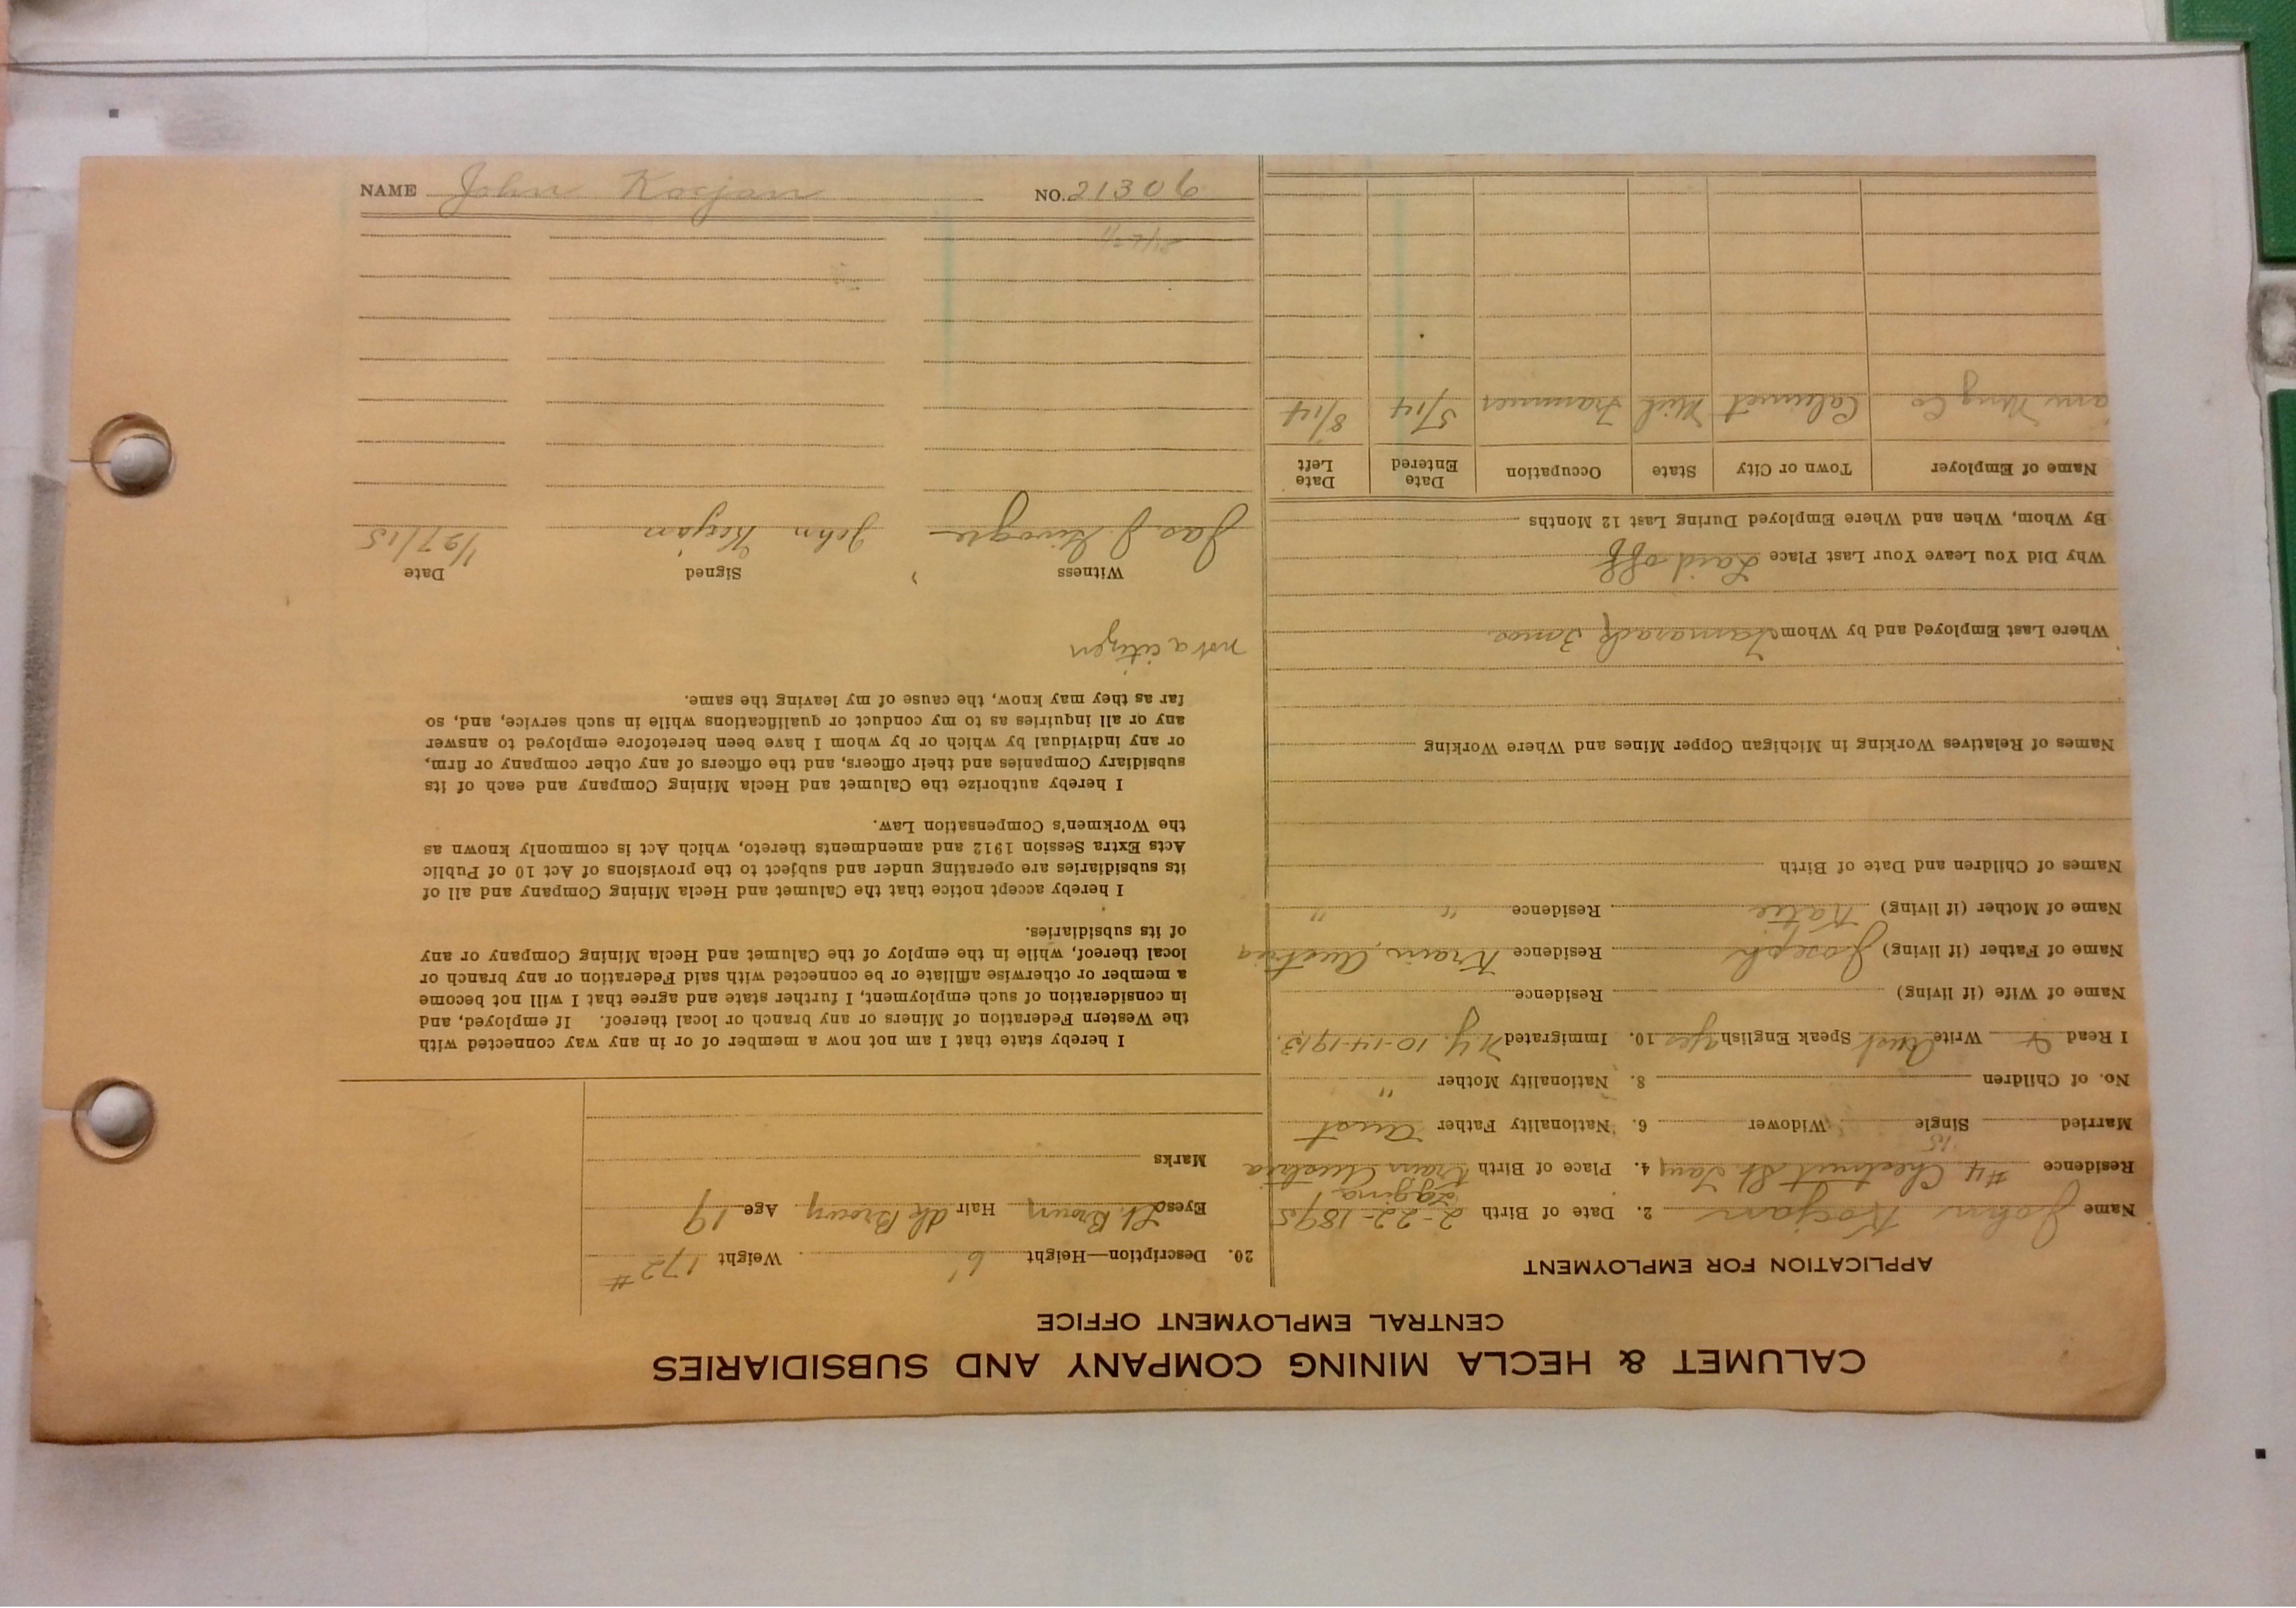 CALUMET & HECLA MINING COMPANY AND SUBSIDIARIES
CENTRAL EMPLOYMENT OFFICE
APPLICATION FOR EMPLOYMENT
Name John Kocjan 2. Date of Birth 2-22-1895
Residence #4 Chestnut St. 4. Place of Birth Krain Austria
Married Single Widower 6. Nationality Father Aust
No. of Children 8. Nationality Mother "
I Read & Write Aust Speak English yes 10. Immigrated N.Y. 10-14-1913.
Name of Wife (if living) Residence
Name of Father (if living) Joseph Residence Krain, Austria
Name of Mother (if living) Katie Residence " "
Names of Children and Date of Birth
Names of Relatives Working in Michigan Copper Mines and Where Working
Where Last Employed and by Whom Tamarack
Why Did You Leave Your Last Place Laid off
By Whom, When and Where Employed During Last 12 Months
Name of Employer Town or City State Occupation Date Entered Date Left
Mng Co Calumet Mich Trammer 5/14 8/14
20. Description—Height 6' Weight 172#
Eyes Lt. Brown Hair dk Brown Age 19
Marks
I hereby state that I am not now a member of or in any way connected with
the Western Federation of Miners or any branch or local thereof. If employed, and
in consideration of such employment, I further state and agree that I will not become
a member or otherwise affiliate or be connected with said Federation or any branch or
local thereof, while in the employ of the Calumet and Hecla Mining Company or any
of its subsidiaries.
I hereby accept notice that the Calumet and Hecla Mining Company and all of
its subsidiaries are operating under and subject to the provisions of Act 10 of Public
Acts Extra Session 1912 and amendments thereto, which Act is commonly known as
the Workmen's Compensation Law.
I hereby authorize the Calumet and Hecla Mining Company and each of its
subsidiary Companies and their officers, and the officers of any other company or firm,
or any individual by which or by whom I have been heretofore employed to answer
any or all inquiries as to my conduct or qualifications while in such service, and, so
far as they may know, the cause of my leaving the same.
not a citizen
Witness Signed Date
Jas. J. John Kocjan 1/27/15
NAME John Kocjan NO. 21306